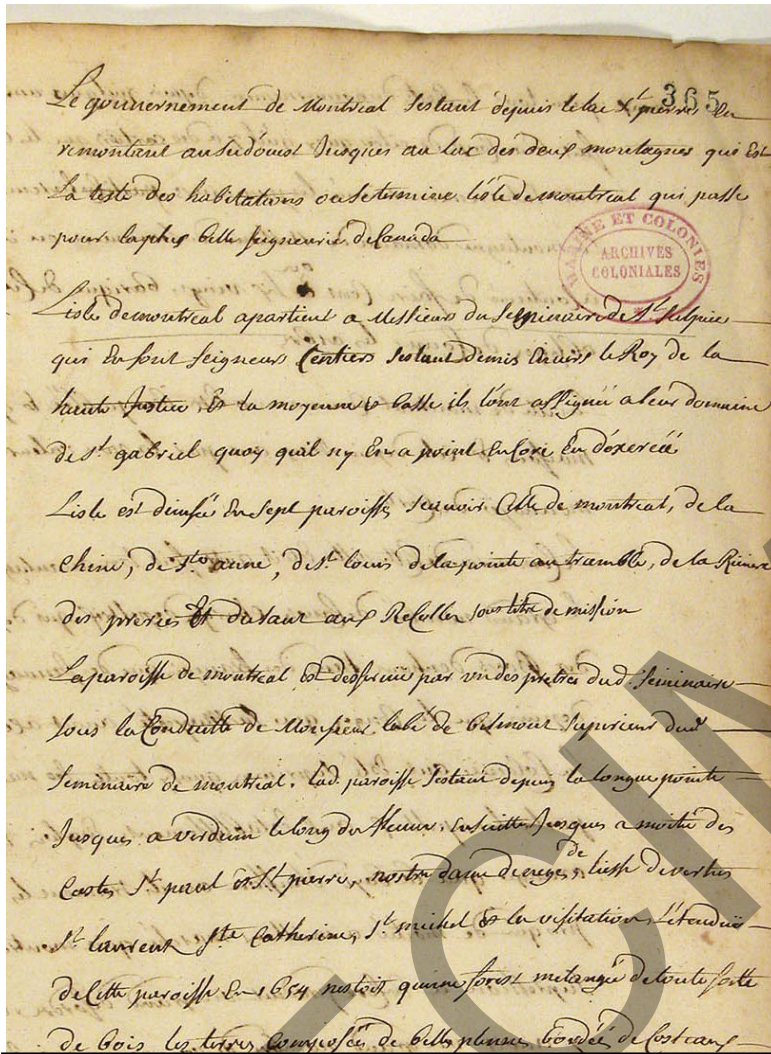 365
Le gouvernement de Montreal s'estant depuis le lac St pierre En
remontant au sudouest Jusques au lac des deux montagnes qui Est
La teste des habitations ou se termine l'isle de montreal qui passe
pour la plus belle seigneurie de Canada
MARINE ET COLONIES
ARCHIVES
COLONIALES
L'isle de montreal apartient a Messieurs du Seminaire de St Sulpice
qui En sont seigneurs s'estant demis Envers le Roy de la
haute Justice, Et la moyenne & basse ils l'ont assignée a leur domaine
de St gabriel quoy quil ny En a point Encore En d'exercée
L'isle est divisée En sept paroisses scavoir Celle de montreal, de la
Chine, de Ste anne, de St louis de la pointe au tramble, de la Riviere
des preries Et du saut aux Recollets sous titre de mission
La paroisse de montreal Est desservie par un des pretres dud. Seminaire
sous la Conduitte de Monsieur l'abé de belmont superieur dud
Seminaire de montreal. lad. paroisse s'estant depuis la longue pointe
Jusques a verdun le long du fleuve, Ensuitte Jusques a moitié des
Costes St paul & St pierre, nostre dame de neges, de liesse de vertus
St laurent Ste Catherine, St michel & la visitation, L'etenduë
de Cette paroisse En 1654 n'estoit qu'une forest melangée de toute sorte
de bois les terres Composées de belles plennes bordées de Costeaux